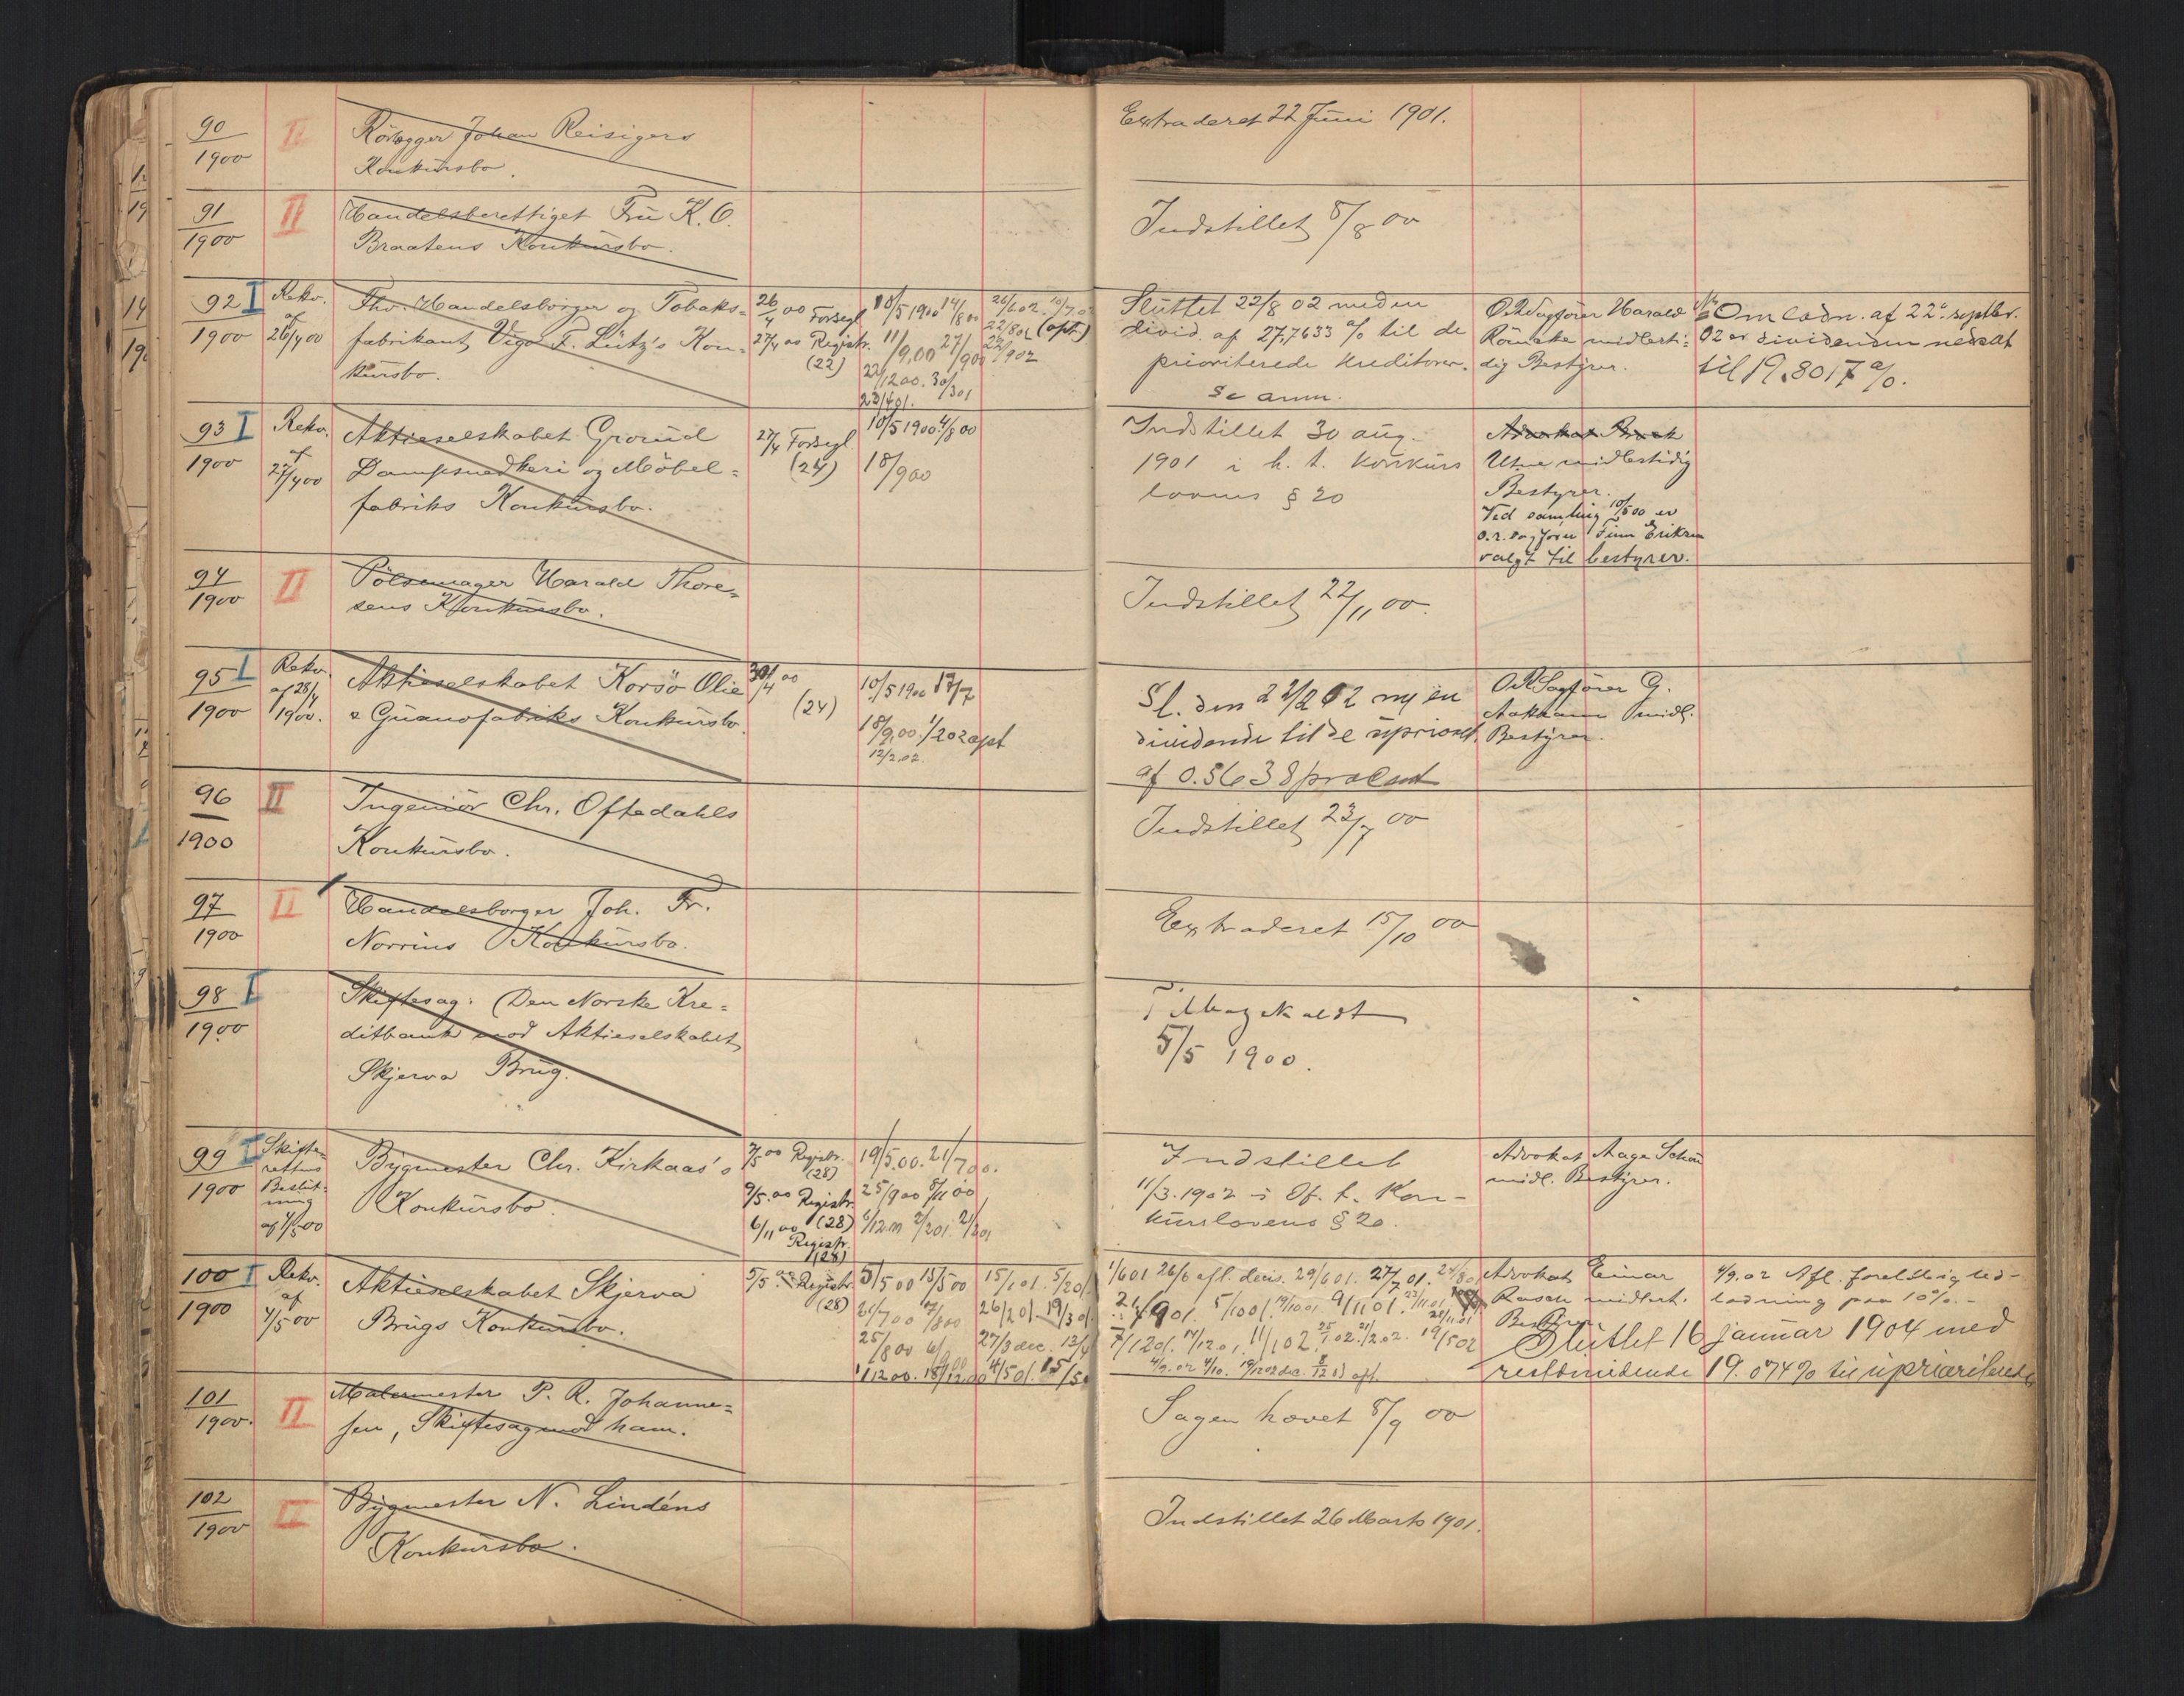 90
1900
II
Rörlægger Johan Reisigers
Konkursbo.
Extraderet 22 Juni 1901.
91
1900
II
Handelsberettiget Fru K. O.
Braatens Konkursbo.
Indstillet 8/8 00
92 I
1900
Rekv.
af
26/4 00
Fhv. Handelsborger og Tobaks=
fabrikant Vigo F. Lütz's Kon=
kursbo.
26/4 00 Forsegl.
27/4 00 Registr.
(22)
18/5 1900 14/8 00
11/9.00 27/9 00
22/12 00. 30/3 01
23/4 01.
26/6 02. 10/7.02
22/8 02 (opt.)
22/9 02
Sluttet 22/8 02 meden
divid. af 27,7633 % til de
prioriterede kreditorer.
Se anm.
O.R.Sagfører Harald
midlerti=
dig Bestyrer.
Omladn. af 22. septbr.
02 er dividenden nedsat
til 19.8017 %.
93 I
1900
Rekv.
af
27/4 00
Aktieselskabet Grorud
Dampsnedkeri og Möbel=
fabriks Konkursbo.
27/4 Forsegl
(24)
10/5 1900 4/8 00
18/9 00
Indstillet 30 aug.
1901 i h. t. konkurs
lovens § 20
Advokat
Utne midlertidig
Bestyrer.
Ved samling 10/5 00 er
o.r.sagfører Finn Eriksen
valgt til bestyrer.
94
1900
II
Pölsemager Harald Thore=
sens Konkursbo.
Indstillet 22/11 00.
95 I
1900
Rekv.
af 28/4
1900.
Aktieselskabet Korsö Olie
& Guanofabriks Konkursbo.
30/4 00
(24)
10/5 1900 17/7
18/9.00. 1/2 02 opt
12/2.02.
Sl. den 22/2 02 m/ en
dividende til de uprior.
af 0.5638 procent
O.R.Sagfører G.
midl.
Bestyrer.
96
1900
II
Ingeniör Chr. Oftedahls
Konkursbo.
Indstillet 23/7 00
97
1900
II
Handelsborger Joh. Fr.
Norrins Konkursbo.
Extraderet 15/10 00
98 I
1900
Skiftesag: Den Norske Kre=
ditbank mod Aktieselskabet
Skjerva Brug.
Tilbagekaldt
5/5 1900.
99 I
1900
Skifte=
rettens
Beslut=
ning
af 7/5 00
Bygmester Chr. Kirkaas's
Konkursbo.
7/5 00 Registr.
(28)
9/5.00 Registr.
(28)
6/11 00
Registr.
(28)
19/5.00. 21/7 00.
25/9 00 8/11 00
Indstillet
11/3.1902 i Of. t. Kon-
kurslovens § 20.
Advokat Aage Schou
midl. Bestyrer.
100 I
1900
Rekv.
af
4/5 00
Aktieselskabet Skjerva
Brugs Konkursbo.
5/5 00 Registr
(28)
5/5 00 15/5 00
15/1 01. 5/2 01.
26/2 01. 19/3 01.
27/3 dec. 13/4
4/5 01. 15/5
1/6 01 26/6 afl. decis. 29/6 01. 27/7 01.
Advokat Einar
Rasch midlert.
Bestyrer
4/9.02 Afl. foreløbig ud-
lodning paa 10%.-
Sluttet 16 januar 1904 med
restdividende 19.074% til uprioriterede
101
1900.
II
Malermester P. R. Johanne=
sen, Skiftesag mod ham.
Sagen hævet 8/9 00
102
1900
II
Bygmester N. Lindéns
Konkursbo.
Indstillet 26 Marts 1901.